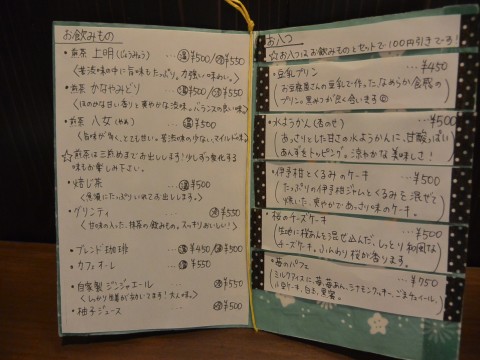 お飲みもの
・煎茶 上明(じょうみょう) … 温¥500/冷¥550
〈苦渋味の中に旨味もたっぷり。力強い味わい。〉
・煎茶 かなやみどり … 温¥500/冷¥550
〈ほのかな甘い香りと爽やかな渋味。バランスの良い味〉
・煎茶 八女(やめ) … 温¥500
〈旨味が高く、とても甘い。苦渋味の少ない、マイルドな味〉
☆煎茶は三煎めまでお出しします!少しずつ変化する
味もお楽しみ下さい。
・焙じ茶 … 温¥500
〈急須にたっぷりいれてお出しします。〉
・グリンティ … 冷¥550
〈甘味の入った、抹茶の飲みもの。スッキリおいしい!〉
・ブレンド珈琲 … 温¥450/冷¥500
・カフェオーレ … ¥550
・自家製ジンジャエール … 冷¥550
〈しっかり生姜がきいてます!大人味。〉
・柚子ジュース … ¥500
お八つ
☆お八つはお飲みものとセットで100円引きです!
・豆乳プリン … ¥450
(お豆腐屋さんの豆乳で作った、なめらか食感の
プリン。黒みつが良く合います)
・水ようかん(杏のせ) … ¥500
(あっさりとした甘さの水ようかんに、甘酸っぱい
あんずをトッピング。涼やかな美味しさ!
・伊予柑とくるみのケーキ … ¥500
(たっぷりの伊予柑ジャムとくるみを混ぜて
焼いた、爽やかであっさり味のケーキ。
・桜のチーズケーキ … ¥500
(生地に桜あんを混ぜ込んだ、しっとり和風な
チーズケーキ。ふんわり桜が香ります。
・苺のパフェ … ¥750
(ミルクアイスに、苺、苺あん、シナモンクッキー、ごまチュイール、
小豆ケーキ、白玉、